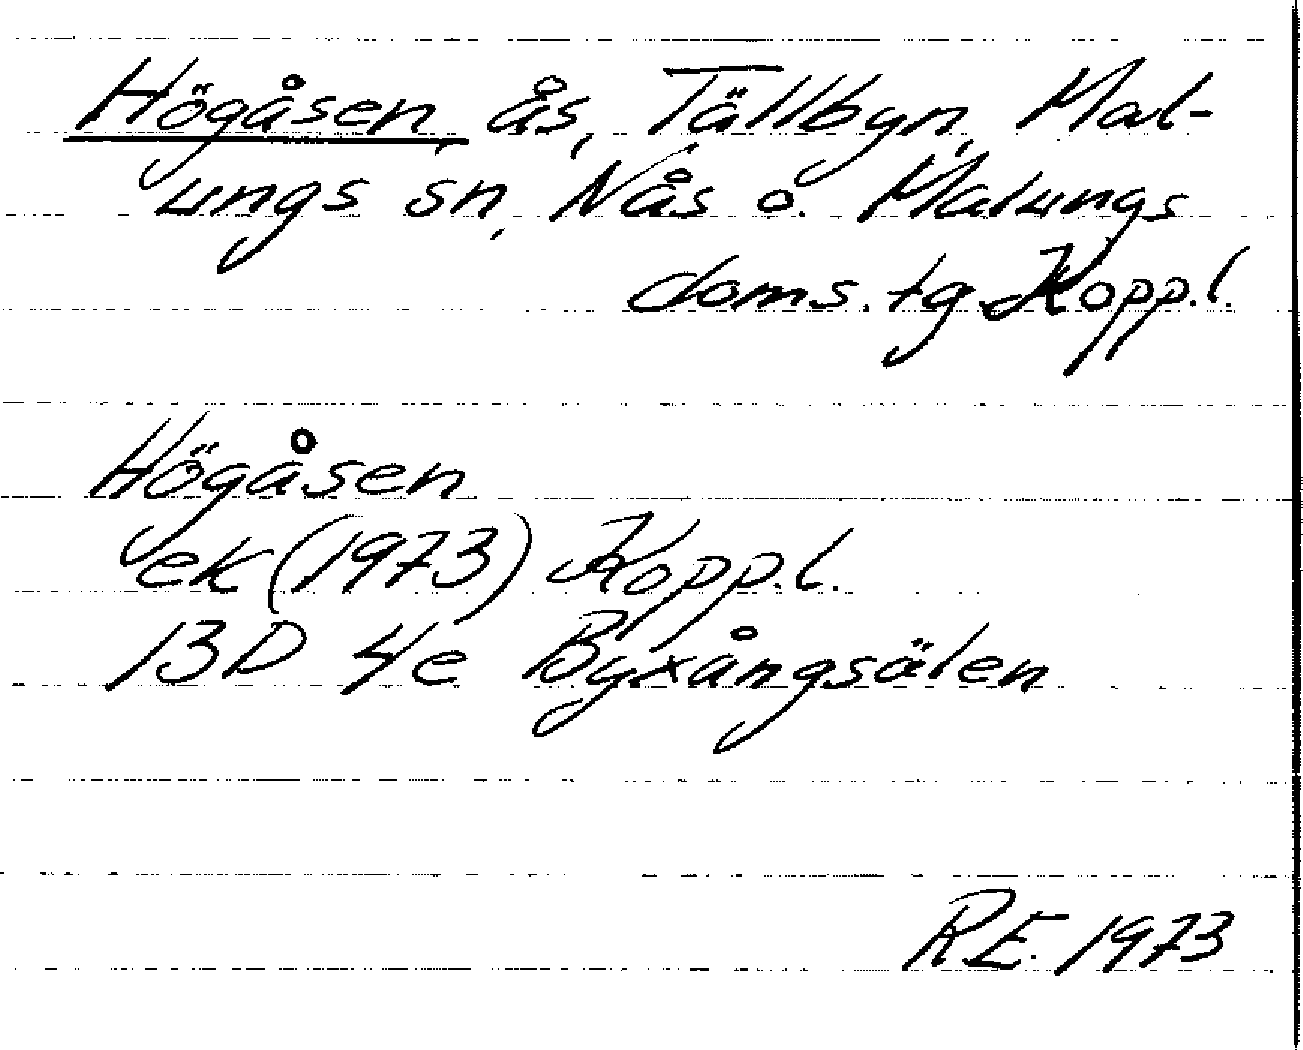 Högåsen, ås, Tällbyn, Mal-
ungs sn, Nås o. Malungs
doms. tg. Kopp.l.
Högåsen
ek (1973) Kopp.l.
13D 4e Byxångsälen
R.E. 1973